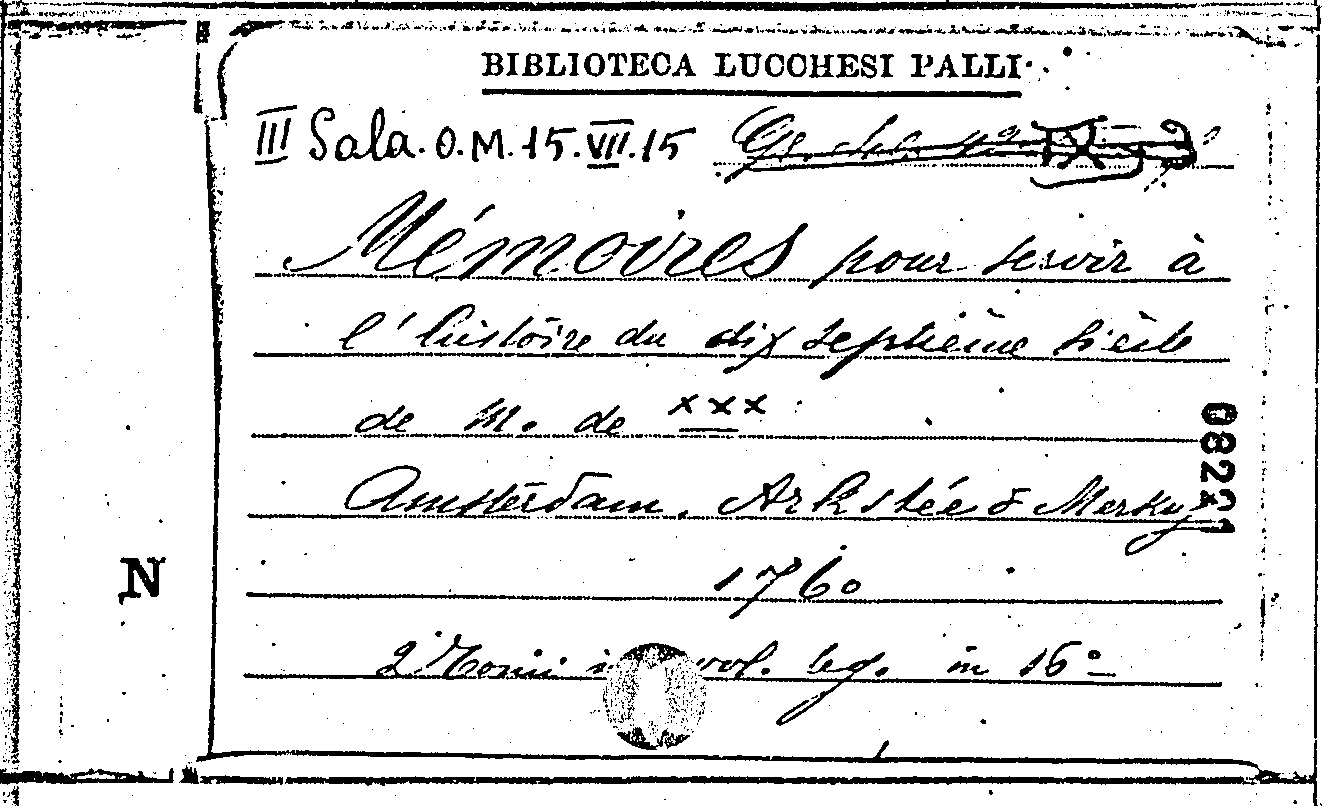 BIBLIOTECA LUCCHESI PALLI
III Sala. O.M. 15. VII. 15
IX
Mémoires pour servir à
l'histoire du dix septième siècle
de M. de xxx
Amsterdam, Arkstée & Merkus
1760
2 Tomi vol. leg. in 16º
08221
N